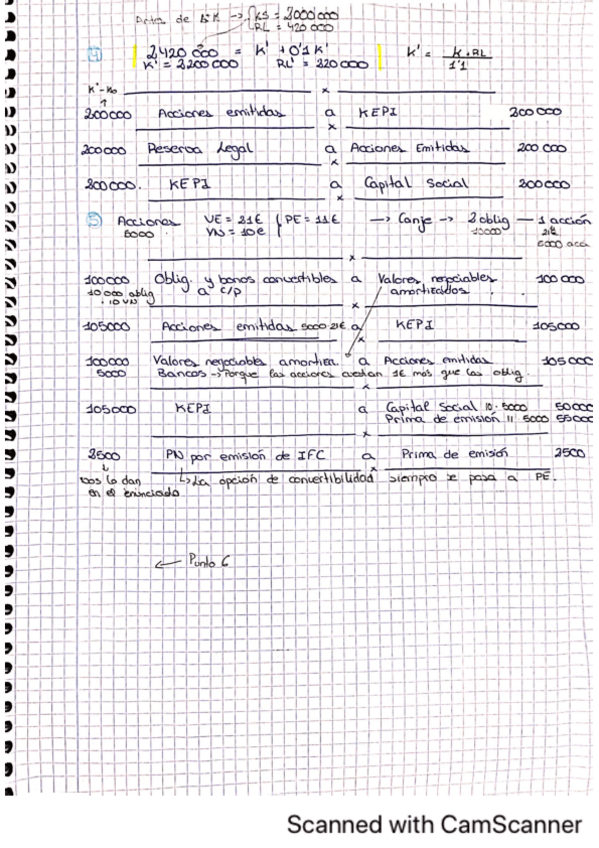 Antes de ↑K → KS = 2000000
RL = 420 000
④ 2420 000 = K' + 0'1 K' K' = K+RL / 1'1
K' = 2200 000 RL' = 220 000
K'-K₀
x
200000 Acciones emitidas a KEPI 200 000
x
200000 Reserva Legal a Acciones Emitidas 200 000
x
200000. KEPI a Capital Social 200000
x
⑤ Acciones VE = 21€ PE = 11€ → Canje → 2 oblig — 1 acción
5000 VN = 10€ 10000 21€
5000 acc
x
100000 Oblig. y bonos convertibles a Valores negociables 100 000
10 000 oblig a c/p amortizados.
· 10 VN
x
105000 Acciones emitidas 5000·21€ a KEPI 105000
x
100000 Valores negociables amortiza. a Acciones emitidas 105000
5000 Bancos → Porque las acciones cuestan 1€ más que las oblig.
x
105000 KEPI a Capital Social 10·5000 50000
Prima de emisión 11·5000 55000
x
2500 PN por emisión de IFC a Prima de emisión 2500
x
nos lo dan ↳ La opción de convertibilidad siempre se pasa a PE.
en el enunciado
← Punto 6
Scanned with CamScanner